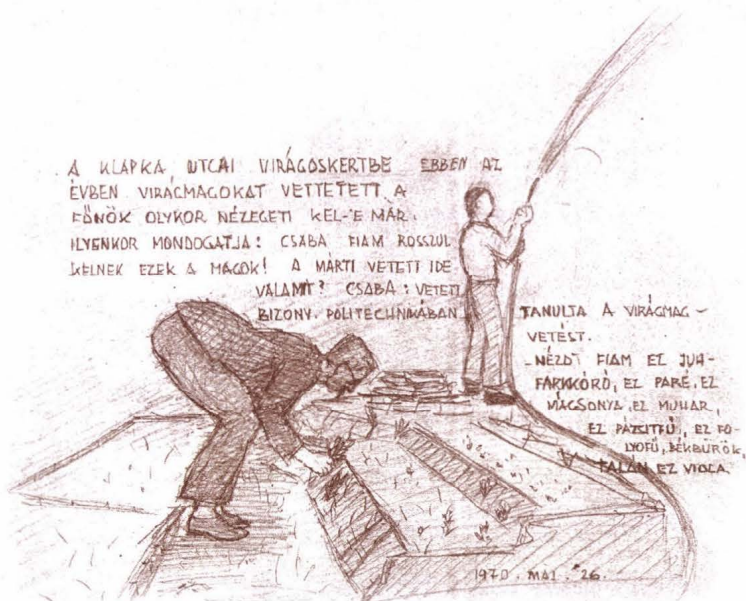 A KLAPKA UTCAI VIRÁGOSKERTBE EBBEN AZ
ÉVBEN VIRÁGMAGOKAT VETTETETT A
FŐNÖK OLYKOR NÉZEGETI KEL-'E MÁR.
ILYENKOR MONDOGATJA: CSABA FIAM ROSSZUL
KELNEK EZEK A MAGOK! A MÁRTI VETETT IDE
VALAMIT? CSABA: VETETT
BIZONY. POLITECHNIKÁBAN
TANULTA A VIRÁGMAG-
VETÉST.
- NÉZD! FIAM EZ JUH-
FARKKÓRÓ, EZ PARÉ, EZ
MÁCSONYA, EZ MUHAR,
EZ PÁZSITFŰ, EZ FO-
LYOFŰ, BÉKBÜRÖK,
TALÁN EZ VIOLA.
1970. MÁJ. 26.